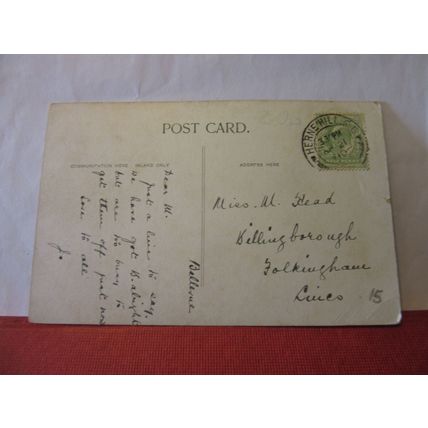 POST CARD.
COMMUNICATION HERE INLAND ONLY
ADDRESS HERE
HERNE HILL
HALF PENNY
Bellevue
Dear M.
just a line to say.
we have got B. alright
but are too busy to
get them off just now
Love to all
Jo
Miss. M. Head
Billingborough
Folkingham
Lincs
15